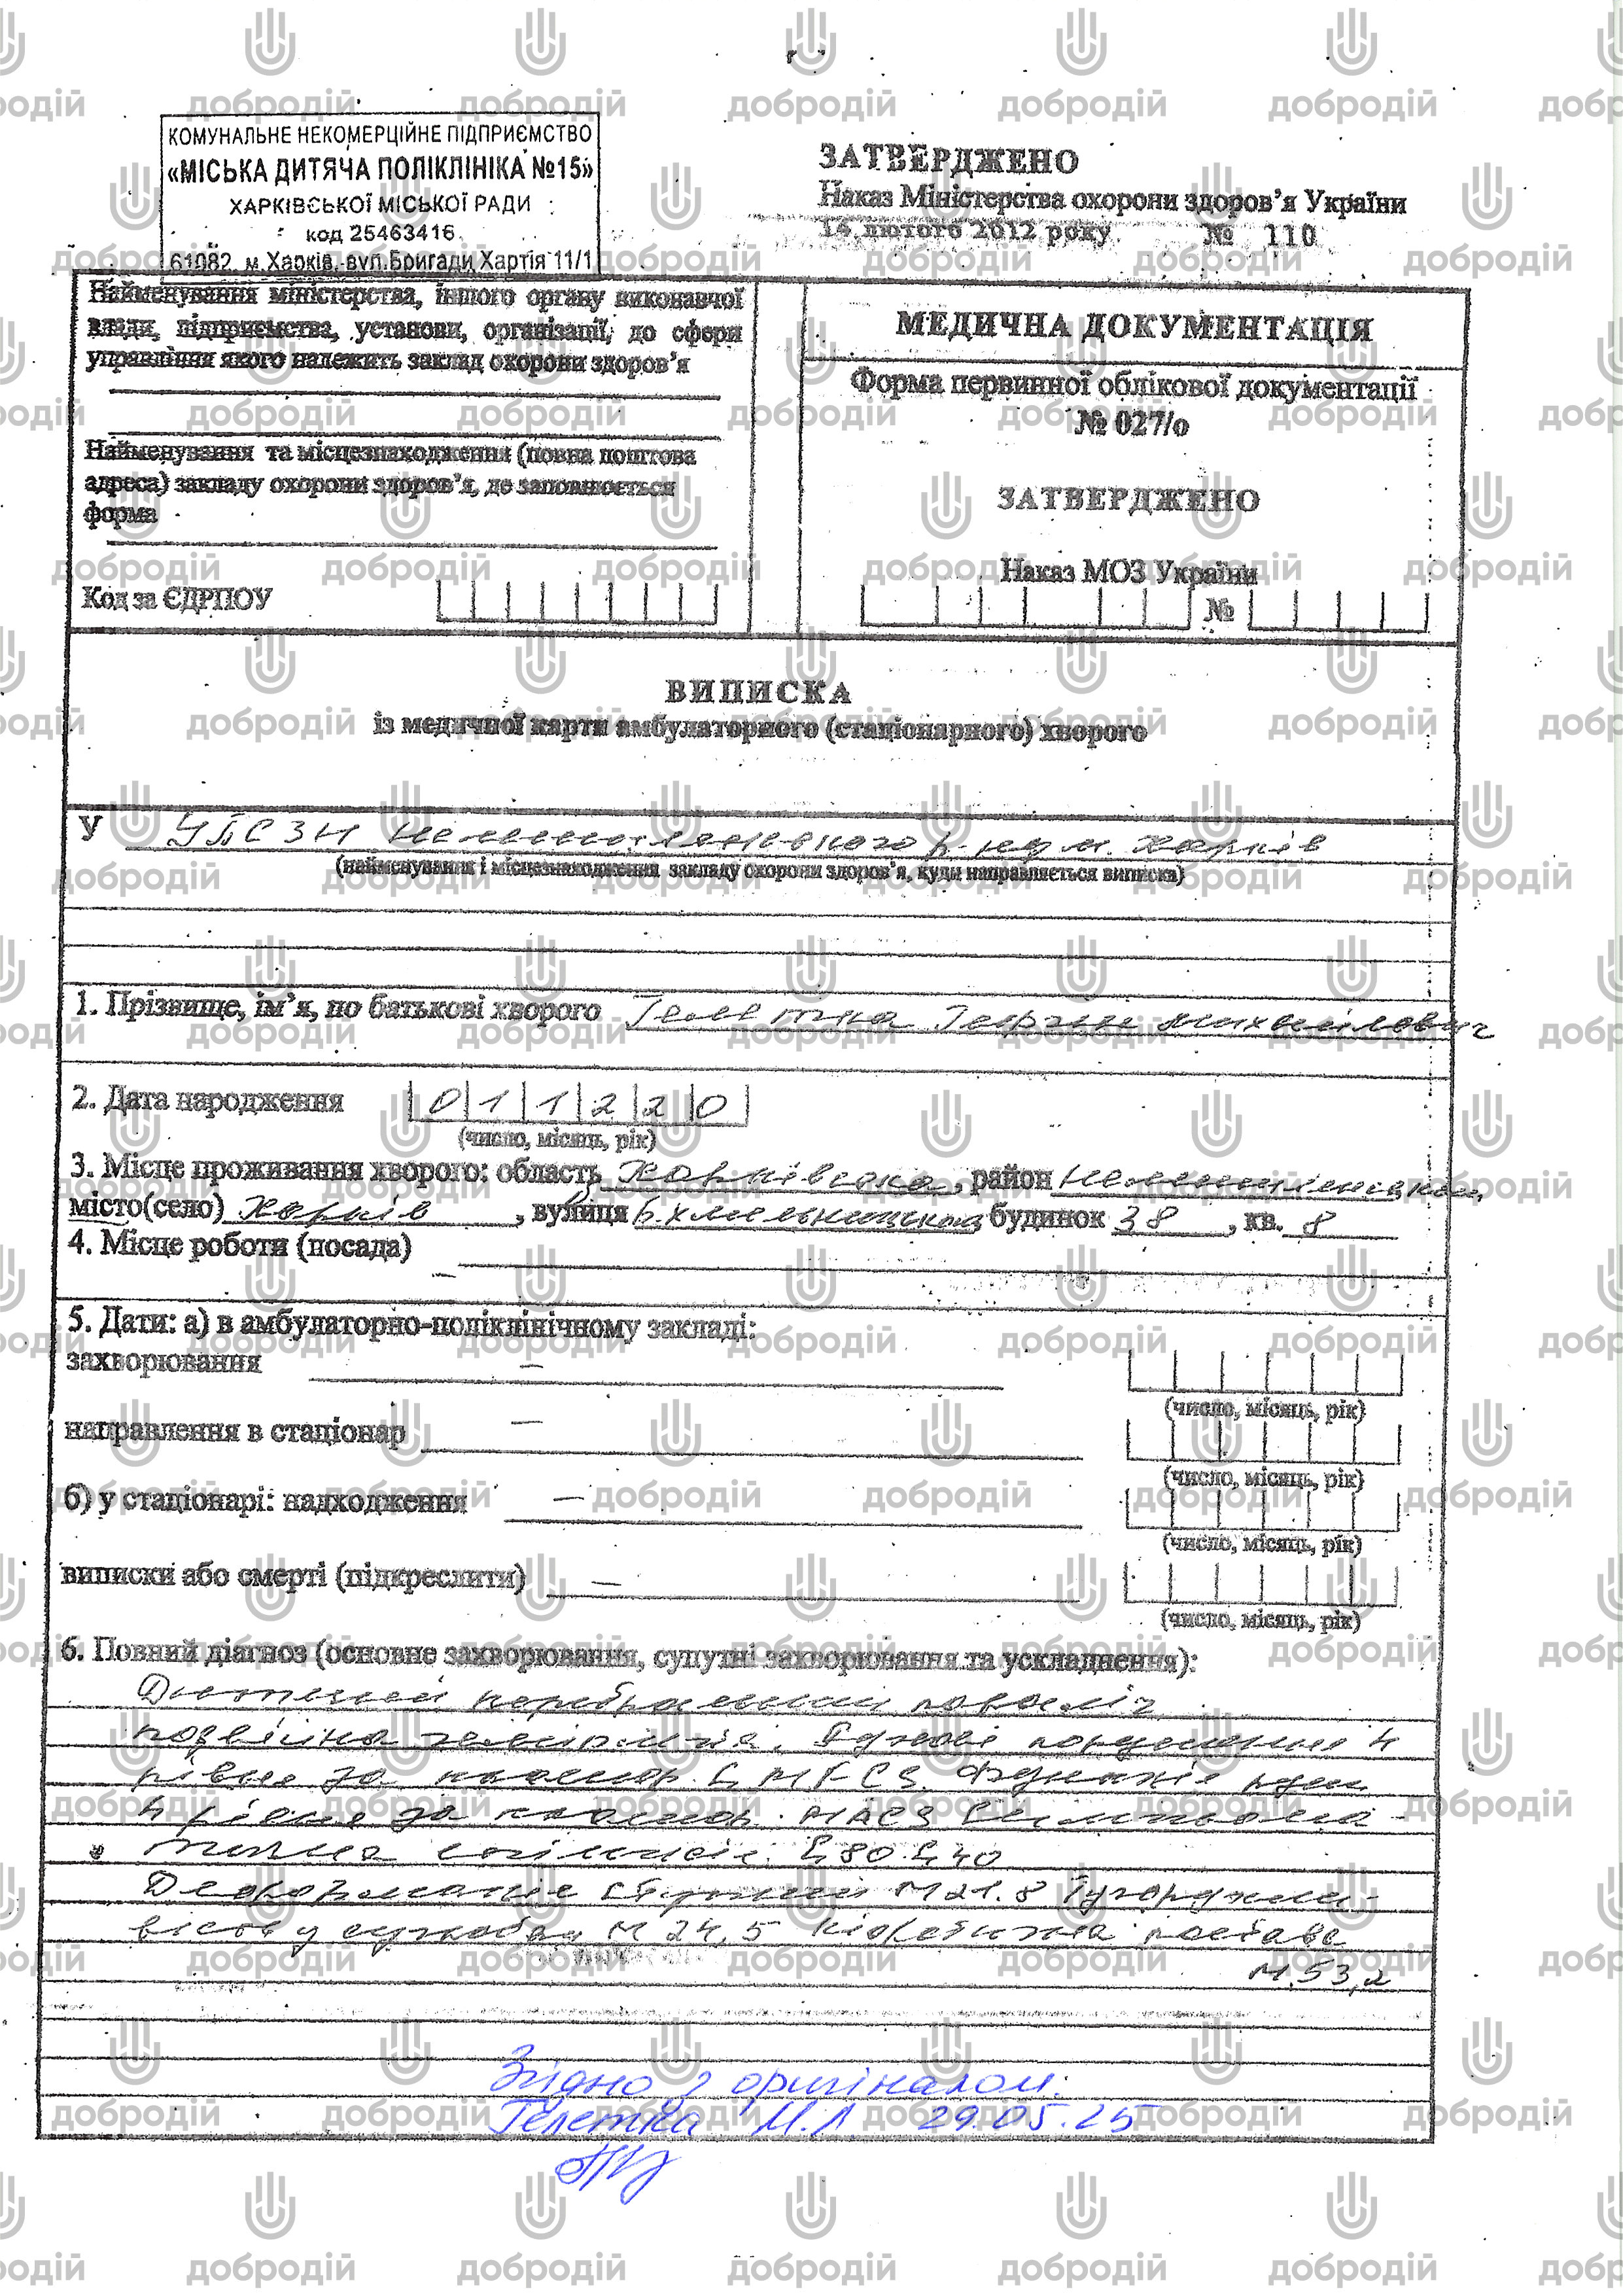 КОМУНАЛЬНЕ НЕКОМЕРЦІЙНЕ ПІДПРИЄМСТВО
«МІСЬКА ДИТЯЧА ПОЛІКЛІНІКА №15»
ХАРКІВСЬКОЇ МІСЬКОЇ РАДИ
код 25463416
61082, м.Харків, вул.Бригади Хартія 11/1
ЗАТВЕРДЖЕНО
Наказ Міністерства охорони здоров’я України
14 лютого 2012 року № 110
Найменування міністерства, іншого органу виконавчої
влади, підприємства, установи, організації, до сфери
управління якого належить заклад охорони здоров’я
Найменування та місцезнаходження (повна поштова
адреса) закладу охорони здоров’я, де заповнюється
форма
Код за ЄДРПОУ
МЕДИЧНА ДОКУМЕНТАЦІЯ
Форма первинної облікової документації
№ 027/о
ЗАТВЕРДЖЕНО
Наказ МОЗ України
№
ВИПИСКА
із медичної карти амбулаторного (стаціонарного) хворого
У УПСЗН р-ну м. Харків
(найменування і місцезнаходження закладу охорони здоров’я, куди направляється виписка)
1. Прізвище, ім’я, по батькові хворого Михайлович
2. Дата народження 011220
(число, місяць, рік)
3. Місце проживання хворого: область Харківська, район
місто(село) Харків, вулиця Б.Хмельницького будинок 38, кв. 8
4. Місце роботи (посада) —
5. Дати: а) в амбулаторно-поліклінічному закладі:
захворювання —
(число, місяць, рік)
направлення в стаціонар —
(число, місяць, рік)
б) у стаціонарі: надходження —
(число, місяць, рік)
виписки або смерті (підкреслити) —
(число, місяць, рік)
6. Повний діагноз (основне захворювання, супутні захворювання та ускладнення):
Дитячий церебральний параліч,
подвійна геміплегія. Рухові порушення 4
рівня за GMFCS. Функція рук
4 рівня за MACS
епілепсія. G80. G40
Деформація M21.8 Тугорухли-
вість у суглобах M 24,5 Кіфотична постава
M.53,2
Згідно з оригіналом.
Гелетка М.Л. 29.05.25
добродій